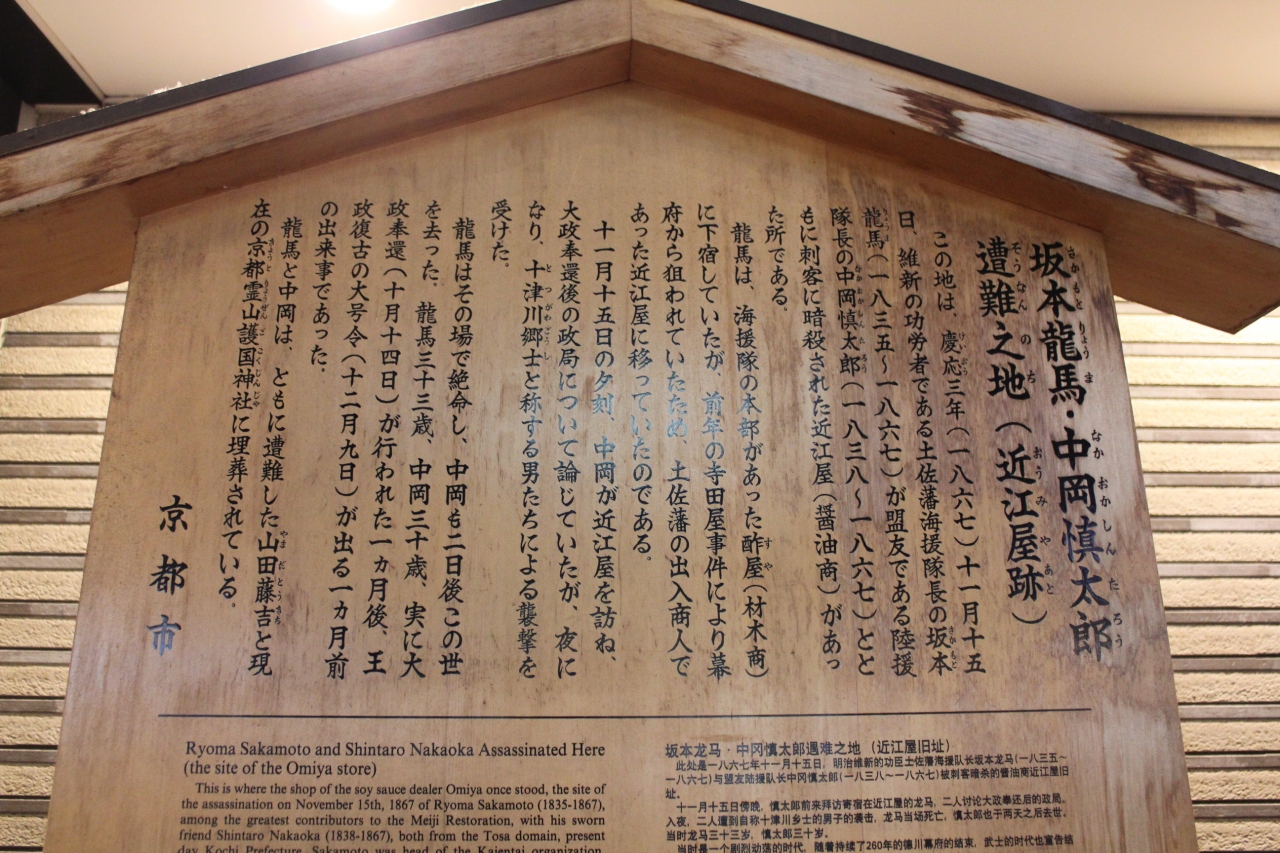 坂本龍馬・中岡慎太郎
遭難之地（近江屋跡）
この地は、慶応三年（一八六七）十一月十五
日、維新の功労者である土佐藩海援隊長の坂本
龍馬（一八三五～一八六七）が盟友である陸援
隊長の中岡慎太郎（一八三八～一八六七）とと
もに刺客に暗殺された近江屋（醤油商）があっ
た所である。
龍馬は、海援隊の本部があった酢屋（材木商）
に下宿していたが、前年の寺田屋事件により幕
府から狙われていたため、土佐藩の出入商人で
あった近江屋に移っていたのである。
十一月十五日の夕刻、中岡が近江屋を訪ね、
大政奉還後の政局について論じていたが、夜に
なり、十津川郷士と称する男たちによる襲撃を
受けた。
龍馬はその場で絶命し、中岡も二日後この世
を去った。龍馬三十三歳、中岡三十歳、実に大
政奉還（十月十四日）が行われた一ヵ月後、王
政復古の大号令（十二月九日）が出る一ヵ月前
の出来事であった。
龍馬と中岡は、ともに遭難した山田藤吉と現
在の京都霊山護国神社に埋葬されている。
京都市
Ryoma Sakamoto and Shintaro Nakaoka Assassinated Here
(the site of the Omiya store)
This is where the shop of the soy sauce dealer Omiya once stood, the site of
the assassination on November 15th, 1867 of Ryoma Sakamoto (1835-1867),
among the greatest contributors to the Meiji Restoration, with his sworn
friend Shintaro Nakaoka (1838-1867), both from the Tosa domain, present
day Kochi Prefecture. Sakamoto was head of the Kaientai organization
坂本龙马・中冈慎太郎遇难之地（近江屋旧址）
此处是一八六七年十一月十五日，明治维新的功臣土佐藩海援队长坂本龙马（一八三五～
一八六七）与盟友陆援队长中冈慎太郎（一八三八～一八六七）被刺客暗杀的酱油商近江屋旧
址。
十一月十五日傍晚，慎太郎前来拜访寄宿在近江屋的龙马，二人讨论大政奉还后的政局。
入夜，二人遭到自称十津川乡士的男子的袭击，龙马当场死亡，慎太郎也于两天之后去世。
当时龙马三十三岁，慎太郎三十岁。
当时是一个剧烈动荡的时代，随着持续了260年的德川幕府的结束，武士的时代也宣告结